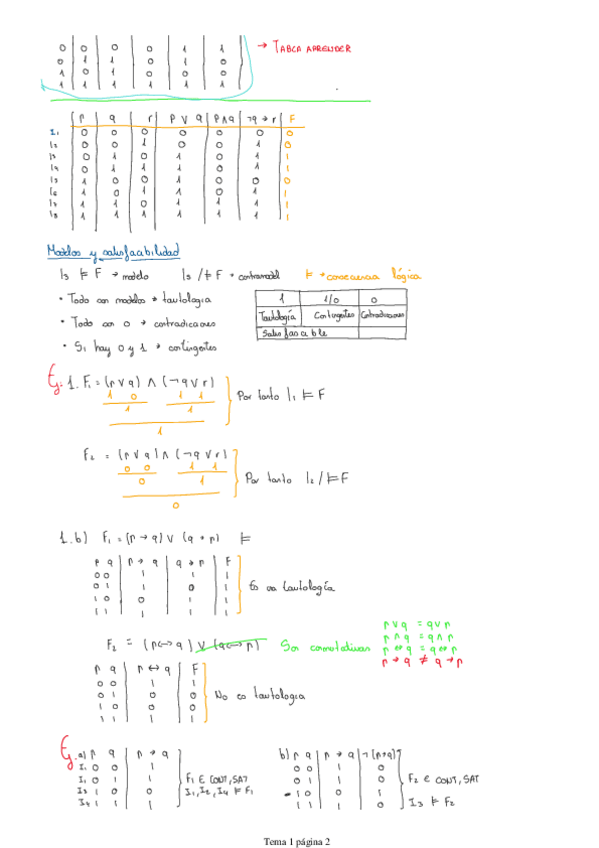 0 0 0 0 1 1 → TABLA APRENDER
0 1 1 0 0
1 0 1 0 0
1 1 1 1 1 1
p q r p ∨ q p∧q ¬q → r F
I₁ 0 0 0 0 0 0 0
I₂ 0 0 1 0 0 1 0
I₃ 0 1 0 1 0 1 1
I₄ 0 1 1 1 0 1 1
I₅ 1 0 0 1 0 0 0
I₆ 1 0 1 1 0 1 1
I₇ 1 1 0 1 1 1 1
I₈ 1 1 1 1 1 1 1
Modelos y satisfacibilidad
I₃ ⊨ F → modelo I₃ /⊨ F → contramodel ⊨ → consecuencia lógica
• Todo con modelos → tautologia
• Todo con 0 → contradicciones
• Si hay 0 y 1 → contingentes
1 1/0 0
Tautología Contingentes Contradicciones
Satisfacible
Ej. 1. F₁ = (p ∨ q) ∧ (¬q ∨ r)
1 0 1 1
1 1
1
Por tanto I₁ ⊨ F
F₂ = (p ∨ q) ∧ (¬q ∨ r)
0 0 1 1
0 1
0
Por tanto I₂ /⊨ F
1. b) F₁ = (p → q) ∨ (q → p) ⊨
p q p → q q → p F
0 0 1 1 1
0 1 1 0 1
1 0 0 1 1
1 1 1 1 1
Es una tautología
F₂ = (p ↔ q) ∨ (q ↔ p) Son conmutativas
p ∨ q = q ∨ p
p ∧ q = q ∧ p
p ↔ q = q ↔ p
p → q ≠ q → p
p q p ↔ q F
0 0 1 1
0 1 0 0
1 0 0 0
1 1 1 1
No es tautologia
Ej. a) p q p → q
I₁ 0 0 1
I₂ 0 1 1
I₃ 1 0 0
I₄ 1 1 1
F₁ ∈ CONT, SAT
I₁, I₂, I₄ ⊨ F₁
b) p q p → q ¬(p→q)
0 0 1 0
0 1 1 0
1 0 0 1
1 1 1 0
F₂ ∈ CONT, SAT
I₃ ⊨ F₂
Tema 1 página 2